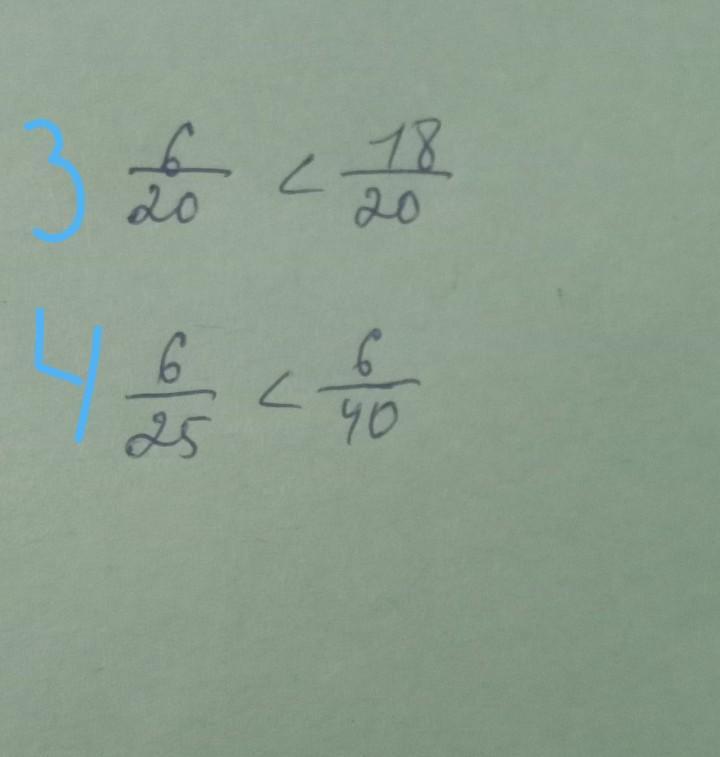 3 6/20 < 18/20
4 6/25 < 6/40